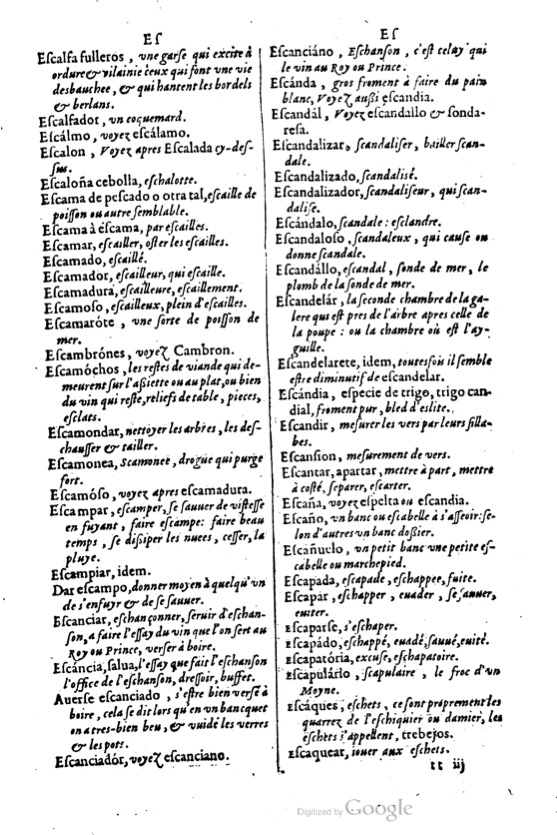 Eſ
Eſcalfa fulleros, vne garſe qui excite à
ordure & vilainie ceux qui font vne vie
desbauchee, & qui hantent les bordels
& berlans.
Eſcalfador, vn coquemard.
Eſcálmo, voyez eſcálamo.
Eſcalon, Voyez apres Eſcalada cy-deſ-
ſus.
Eſcaloña cebolla, eſchalotte.
Eſcama de peſcado o otra tal, eſcaille de
poiſſon ou autre ſemblable.
Eſcama à eſcama, par eſcailles.
Eſcamar, eſcailler, oſter les eſcailles.
Eſcamado, eſcaillé.
Eſcamador, eſcailleur, qui eſcaille.
Eſcamadura, eſcailleure, eſcaillement.
Eſcamoſo, eſcailleux, plein d'eſcailles.
Eſcamaróte, vne ſorte de poiſſon de
mer.
Eſcambrónes, voyez Cambron.
Eſcamóchos, les reſtes de viande qui de-
meurent ſur l'aſsiette ou au plat, ou bien
du vin qui reſte, reliefs de table, pieces,
eſclats.
Eſcamondar, nettoyer les arbres, les deſ-
chauſſer & tailler.
Eſcamonea, Scamoneé, drogue qui purge
fort.
Eſcamóſo, voyez apres eſcamadura.
Eſcampar, eſcamper, ſe ſauuer de viſteſſe
en fuyant, faire eſcampe: faire beau
temps, ſe diſsiper les nuees, ceſſer, la
pluye.
Eſcampiar, idem.
Dar eſcampo, donner moyen à quelqu'vn
de s'enfuyr & de ſe ſauuer.
Eſcanciar, eſchançonner, ſeruir d'eſchan-
ſon, a faire l'eſſay du vin que l'on ſert au
Roy ou Prince, verſer à boire.
Eſcáncia, ſalua, l'eſſay que fait l'eſchanſon
l'office de l'eſchanſon, dreſſoir, buffet.
Auerſe eſcanciado, s'eſtre bien verſé à
boire, cela ſe dit lors qu'en vn bancquet
on a tres-bien beu, & vuidé les verres
& les pots.
Eſcanciadór, voyez eſcanciano.
Eſ
Eſcanciáno, Eſchanſon, c'eſt celuy qui
ſe le vin au Roy ou Prince.
Eſcánda, gros froment à faire du pain
blanc, Voyez auſsi eſcandia.
Eſcandál, Voyez eſcandallo & ſonda-
reſa.
Eſcandalizar, ſcandaliſer, bailler ſcan-
dale.
Eſcandalizado, ſcandaliſé.
Eſcandalizador, ſcandaliſeur, qui ſcan-
daliſe.
Eſcándalo, ſcandale: eſclandre.
Eſcandaloſo, ſcandaleux, qui cauſe ou
donne ſcandale.
Eſcandállo, eſcandal, ſonde de mer, le
plomb de la ſonde de mer.
Eſcandelár, la ſeconde chambre de la ga-
lere qui eſt pres de l'arbre apres celle de
la poupe: ou la chambre où eſt l'ay-
guille.
Eſcandelarete, idem, toutesfois il ſemble
eſtre diminutif de eſcandelar.
Eſcándia, eſpecie de trigo, trigo can-
dial, froment pur, bled d'eslite.
Eſcandir, meſurer les vers par leurs ſilla-
bes.
Eſcanſion, meſurement de vers.
Eſcantar, apartar, mettre à part, mettre
à coſté, ſeparer, eſcarter.
Eſcaña, voyez eſpelta ou eſcandia.
Eſcaño, vn banc ou eſcabelle à s'aſſeoir: ſe-
lon d'autres vn banc doſsier.
Eſcañuelo, vn petit banc vne petite eſ-
cabelle ou marchepied.
Eſcapada, eſcapade, eſchappee, fuite.
Eſcapar, eſchapper, euader, ſe ſauuer,
euiter.
Eſcaparſe, s'eſchaper.
Eſcapádo, eſchappé, euadé, ſauué, euité.
Eſcapatória, excuſe, eſchapatoire.
Eſcapulário, ſcapulaire, le froc d'vn
Moyne.
Eſcáques, eſchets, ce ſont proprement les
quarrez de l'eſchiquier ou damier, les
eſchets s'appellent, trebejos.
Eſcaquear, iouer aux eſchets.
tt iij
Digitized by Google